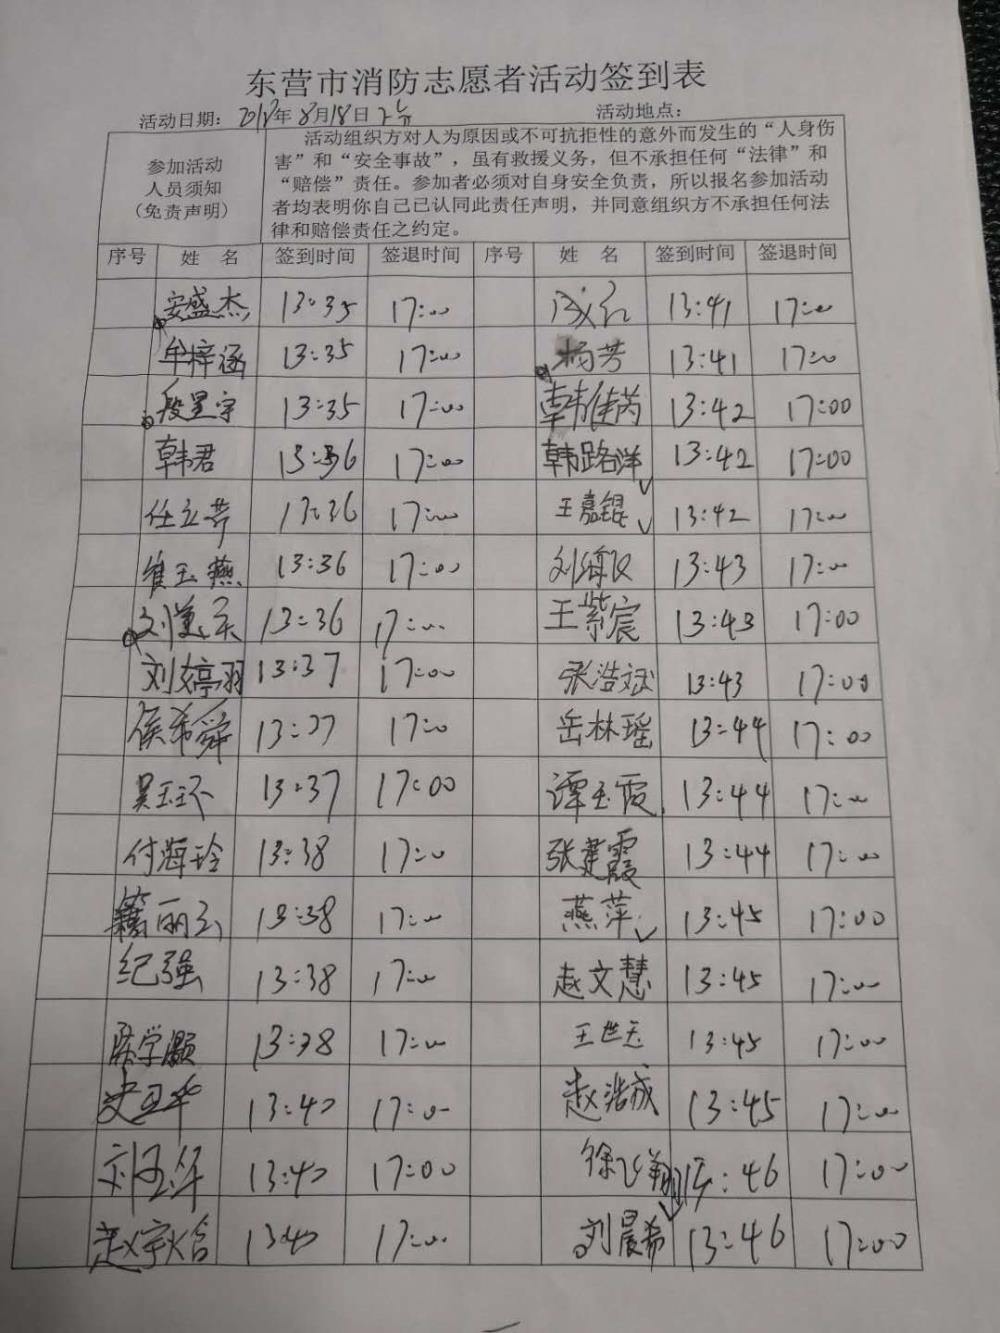 东营市消防志愿者活动签到表
活动日期: 2018年8月18日 活动地点:
参加活动
人员须知
(免责声明)
活动组织方对人为原因或不可抗拒性的意外而发生的“人身伤
害”和“安全事故”，虽有救援义务，但不承担任何“法律”和
“赔偿”责任。参加者必须对自身安全负责，所以报名参加活动
者均表明你自己已认同此责任声明，并同意组织方不承担任何法
律和赔偿责任之约定。
序号 姓 名 签到时间 签退时间 序号 姓 名 签到时间 签退时间
安盛杰 13:35 17:00 13:41 17:00
牟梓涵 13:35 17:00 杨芳 13:41 17:00
段星宇 13:35 17:00 韩佳芮 13:42 17:00
韩君 13:36 17:00 韩路洋 13:42 17:00
任立芳 13:36 17:00 王嘉锟 13:42 17:00
崔玉燕 13:36 17:00 13:43 17:00
13:36 17:00 王紫宸 13:43 17:00
刘婷羽 13:37 17:00 张浩斌 13:43 17:00
侯希舜 13:37 17:00 岳林瑶 13:44 17:00
吴玉环 13:37 17:00 谭玉霞 13:44 17:00
付海玲 13:38 17:00 张建霞 13:44 17:00
籍丽云 13:38 17:00 燕萍 13:45 17:00
纪强 13:38 17:00 赵文慧 13:45 17:00
陈学灏 13:38 17:00 王世玉 13:45 17:00
史卫华 13:40 17:00 赵浩成 13:45 17:00
刘玉华 13:40 17:00 徐飞翔 13:46 17:00
赵宇晗 13:40 17:00 刘晨希 13:46 17:00